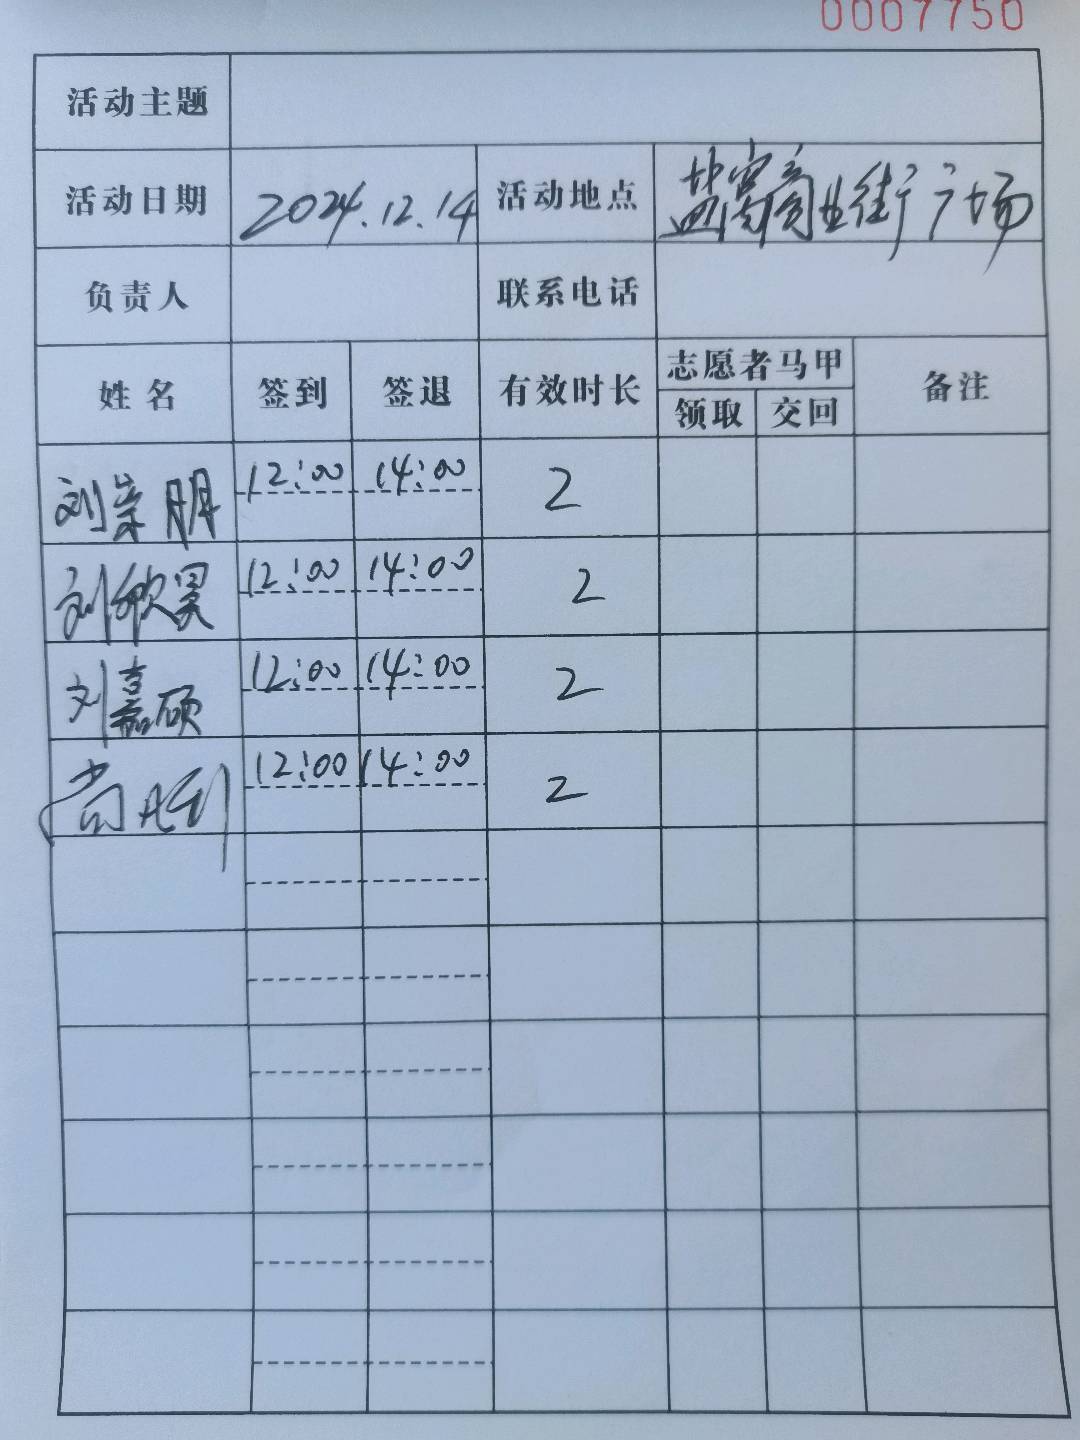 0007750
活动主题
活动日期 2024.12.14 活动地点 盐窝商业街广场
负责人 联系电话
姓名 签到 签退 有效时长 志愿者马甲 备注
领取 交回
刘崇朋 12:00 14:00 2
刘欣昊 12:00 14:00 2
刘嘉硕 12:00 14:00 2
尚 12:00 14:00 2